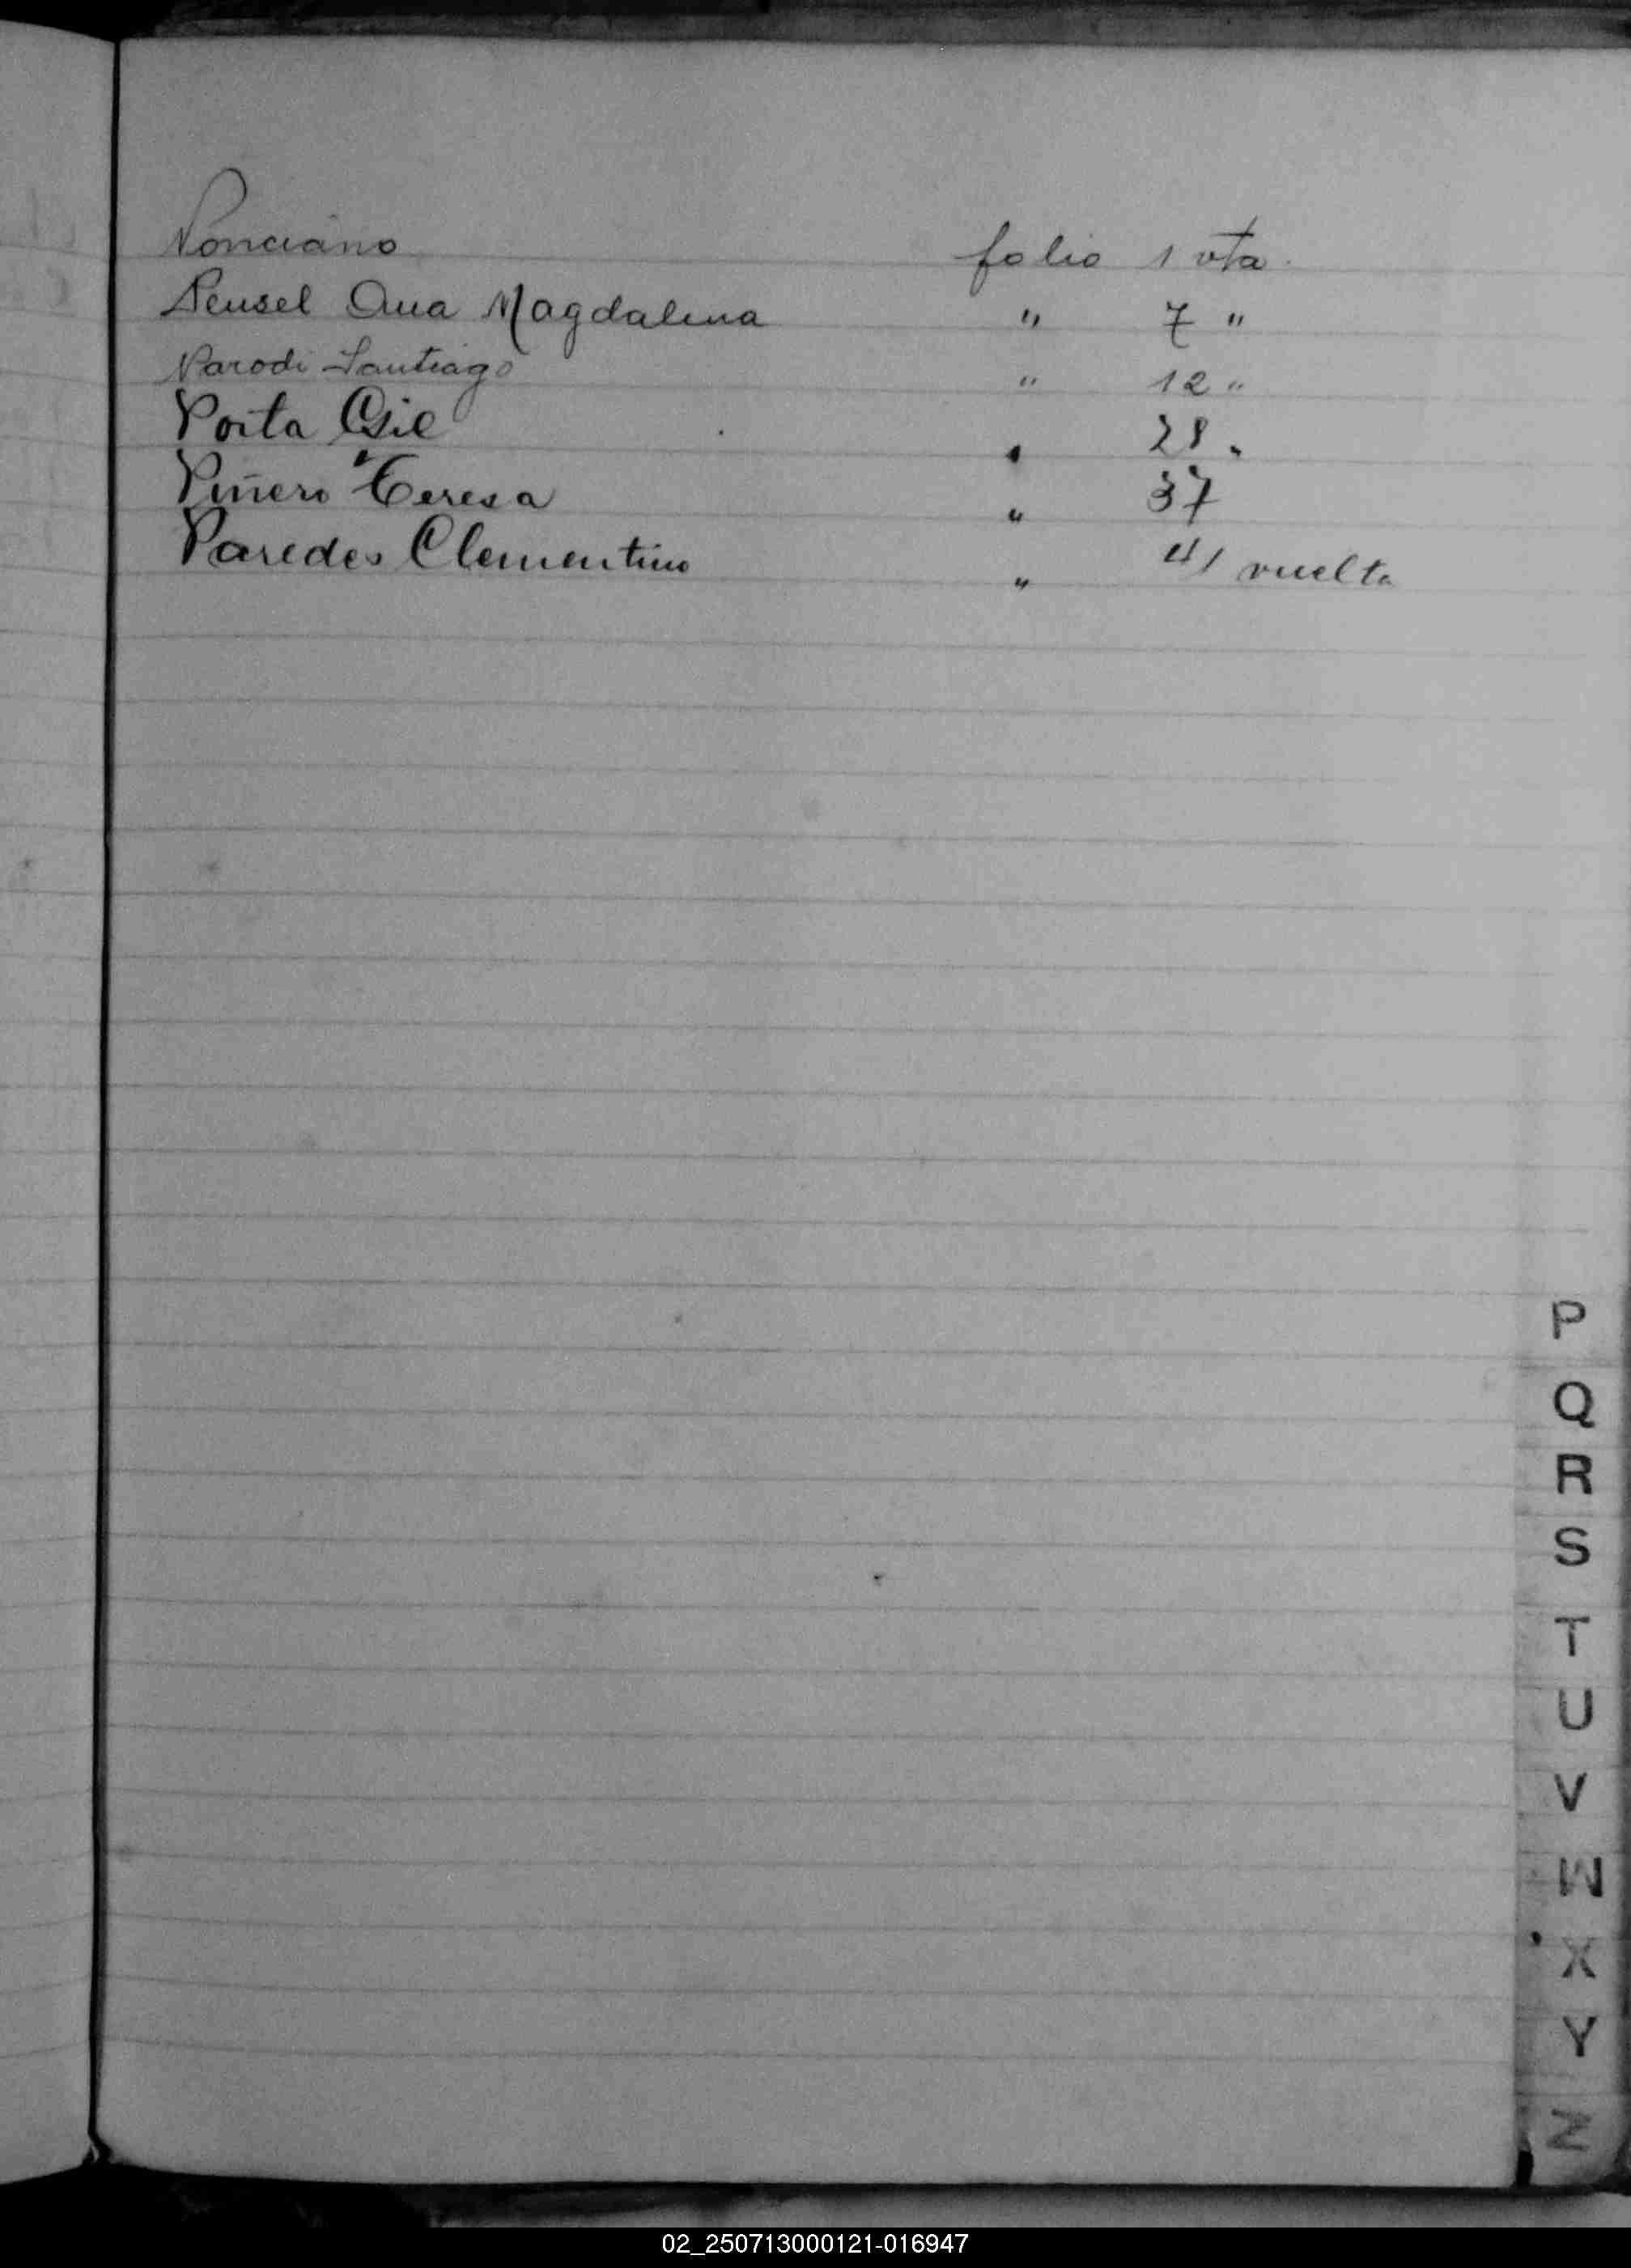 Ponciano folio 1 vta.
Peusel Ana Magdalena " 7 "
Parodi Santiago " 12 "
Porta Gil " 28 "
Piñero Teresa " 37
Paredes Clementino " 41 vuelta
P
Q
R
S
T
U
V
W
X
Y
Z
02_250713000121-016947